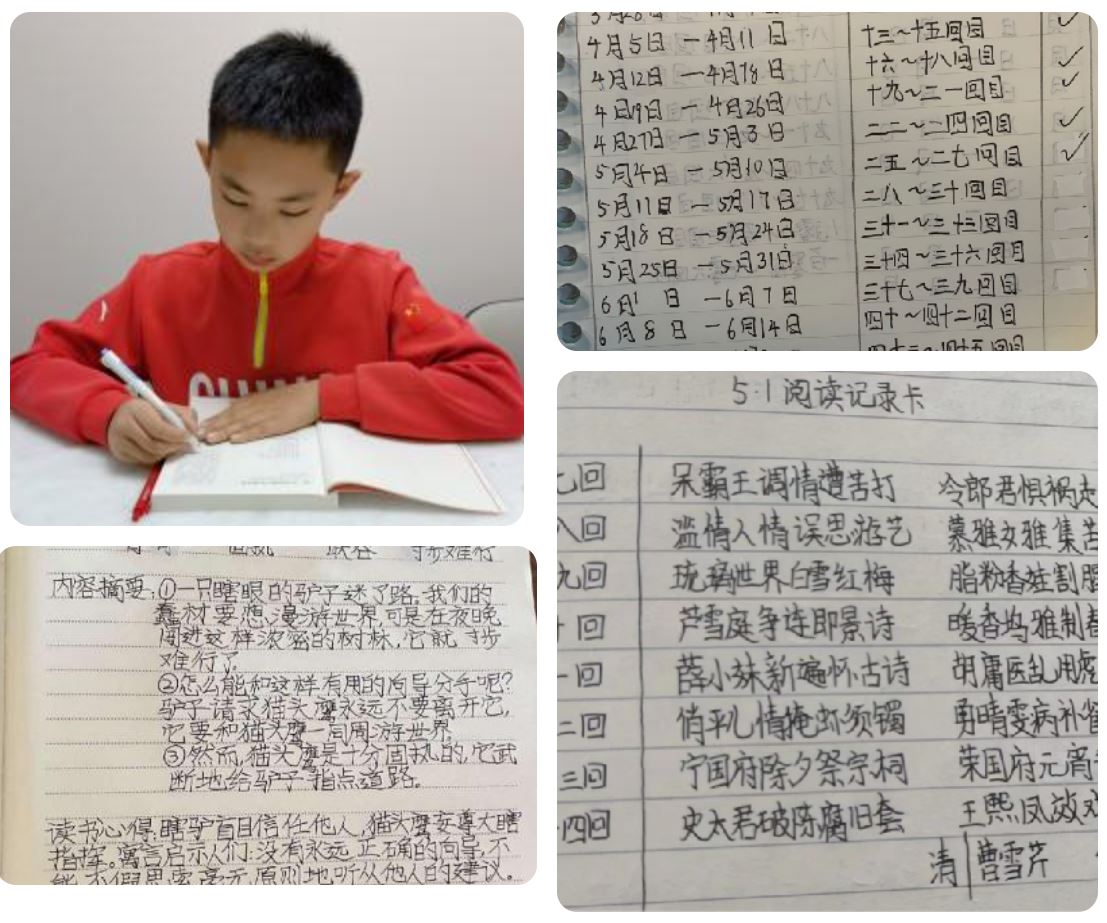 4月5日 — 4月11日 十三~十五回目 ✓
4月12日 — 4月18日 十六~十八回目 ✓
4日19日 — 4月26日 十九~二一回目 ✓
4月27日 — 5月3日 二二~二四回目 ✓
5月4日 — 5月10日 二五~二七回目 ✓
5月11日 — 5月17日 二八~三十回目
5月18日 — 5月24日 三十一~三十三回目
5月25日 — 5月31日 三十四~三十六回目
6月1日 — 6月7日 三十七~三九回目
6月8日 — 6月14日 四十~四十二回目
四十三~四十五回
5:1阅读记录卡
七回 呆霸王调情遭苦打 冷郎君惧祸走
八回 滥情人情误思游艺 慕雅女雅集苦
九回 琉璃世界白雪红梅 脂粉香娃割腥
十回 芦雪庭争连即景诗 暖香坞雅制春
一回 薛小妹新编怀古诗 胡庸医乱用虎
二回 俏平儿情掩虾须镯 勇晴雯病补雀
三回 宁国府除夕祭宗祠 荣国府元宵
四回 史太君破陈腐旧套 王熙凤效戏
清 曹雪芹
寸步难行
内容摘要:①一只瞎眼的驴子迷了路,我们的
蠢材要想漫游世界,可是在夜晚
闯进这样浓密的树林,它就寸步
难行了
②怎么能和这样有用的向导分手呢?
驴子请求猫头鹰永远不要离开它,
它要和猫头鹰一同周游世界
③然而,猫头鹰是十分固执的,它武
断地给驴子指点道路。
读书心得,瞎驴盲目信任他人,猫头鹰妄尊大瞎
指挥。寓言启示人们:没有永远正确的向导,不
能不假思索毫无原则地听从他人的建议。